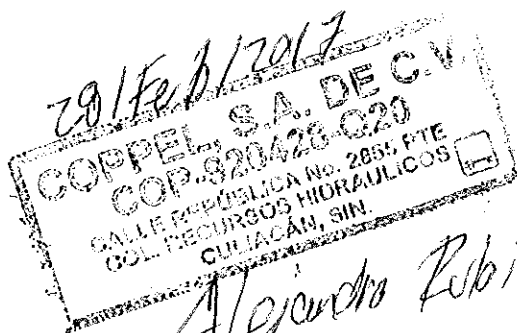 28/Feb/2017
COPPEL, S.A. DE C.V.
COP-920428-Q20
CALLE REPÚBLICA No. 2855 PTE
COL. RECURSOS HIDRAULICOS
CULIACÁN, SIN.
Alejandro Rubi